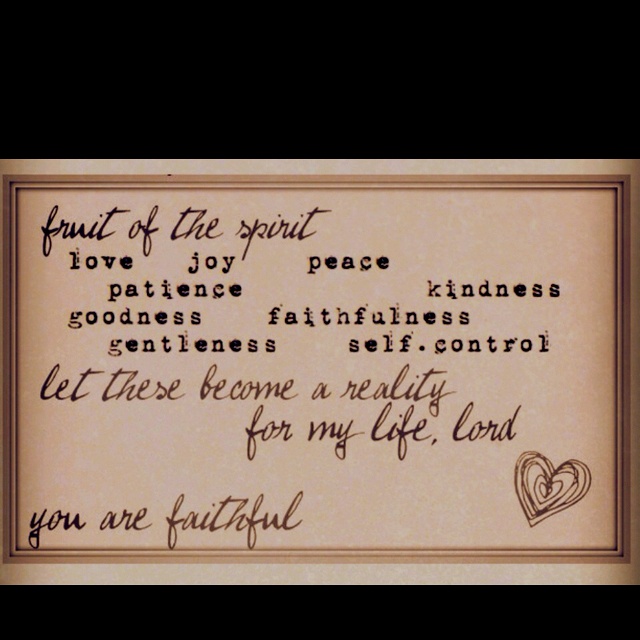 fruit of the spirit
love joy peace
patience kindness
goodness faithfulness
gentleness self.control
let these become a reality
for my life, lord
you are faithful